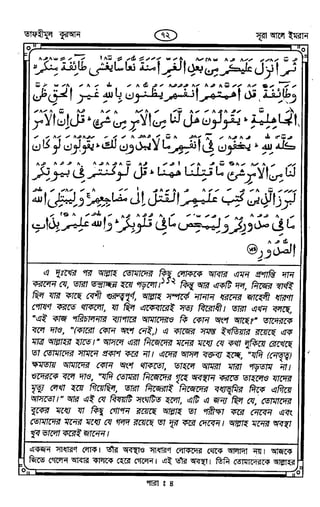 তাফহীমুল কুরআন
৭২
সূরা আলে ইমরান
ثُمَّ أَنْزَلَ عَلَيْكُمْ مِنْ بَعْدِ الْغَمِّ أَمَنَةً نُعَاسًا يَغْشَى طَائِفَةً مِنْكُمْ
وَطَائِفَةٌ قَدْ أَهَمَّتْهُمْ أَنْفُسُهُمْ يَظُنُّونَ بِاللَّهِ غَيْرَ الْحَقِّ ظَنَّ
الْجَاهِلِيَّةِ يَقُولُونَ هَلْ لَنَا مِنَ الْأَمْرِ مِنْ شَيْءٍ قُلْ إِنَّ الْأَمْرَ
كُلَّهُ لِلَّهِ يُخْفُونَ فِي أَنْفُسِهِمْ مَا لَا يُبْدُونَ لَكَ يَقُولُونَ لَوْ كَانَ
لَنَا مِنَ الْأَمْرِ شَيْءٌ مَا قُتِلْنَا هَهُنَا قُلْ لَوْ كُنْتُمْ فِي بُيُوتِكُمْ
لَبَرَزَ الَّذِينَ كُتِبَ عَلَيْهِمُ الْقَتْلُ إِلَى مَضَاجِعِهِمْ وَلِيَبْتَلِيَ اللَّهُ
مَا فِي صُدُورِكُمْ وَلِيُمَحِّصَ مَا فِي قُلُوبِكُمْ وَاللَّهُ عَلِيمٌ بِذَاتِ
الصُّدُورِ
এ দুঃখের পর আল্লাহ তোমাদের কিছু লোককে আবার এমন প্রশান্তি দান
করলেন যে, তারা তন্দ্রাচ্ছন্ন হয়ে পড়লো।১১২ কিন্তু আর একটি দল, নিজের স্বার্থই
ছিল যার কাছে বেশী গুরুত্বপূর্ণ, আল্লাহ সম্পর্কে নানান ধরনের জাহেলী ধারণা
পোষণ করতে থাকলো, যা ছিল একেবারেই সত্য বিরোধী। তারা এখন বলছে,
“এই কাজ পরিচালনার ব্যাপারে আমাদেরও কি কোন অংশ আছে?” তাদেরকে
বলে দাও, “(কারো কোন অংশ নেই,) এ কাজের সমস্ত ইখতিয়ার রয়েছে এক
মাত্র আল্লাহর হাতে।” আসলে এরা নিজেদের মনের মধ্যে যে কথা লুকিয়ে রেখেছে
তা তোমাদের সামনে প্রকাশ করে না। এদের আসল বক্তব্য হচ্ছে, “যদি (নেতৃত্ব)
ক্ষমতায় আমাদের কোন অংশ থাকতো, তাহলে আমরা মারা পড়তাম না।”
ওদেরকে বলে দাও, “যদি তোমরা নিজেদের গৃহে অবস্থান করতে তাহলেও যাদের
মৃত্যু লেখা হয়ে গিয়েছিল, তারা নিজেরাই নিজেদের বধ্যভূমির দিকে এগিয়ে
আসতো।” আর এই যে বিষয়টি সংঘটিত হলো, এটি এ জন্য ছিল যে, তোমাদের
বুকের মধ্যে যা কিছু গোপন রয়েছে আল্লাহ তা পরীক্ষা করে নেবেন এবং
তোমাদের মনের মধ্যে যে গলদ রয়েছে তা দূর করে দেবেন। আল্লাহ মনের অবস্থা
খুব ভালো করেই জানেন।
একজন সাধারণ লোক। তাঁর অবস্থাও সাধারণ লোকদের থেকে আলাদা নয়। আজকে
জিতে গেলেন আবার কালকে হেরে গেলেন। এই তাঁর অবস্থা। তিনি তোমাদেরকে আল্লাহর
পারা : ৪